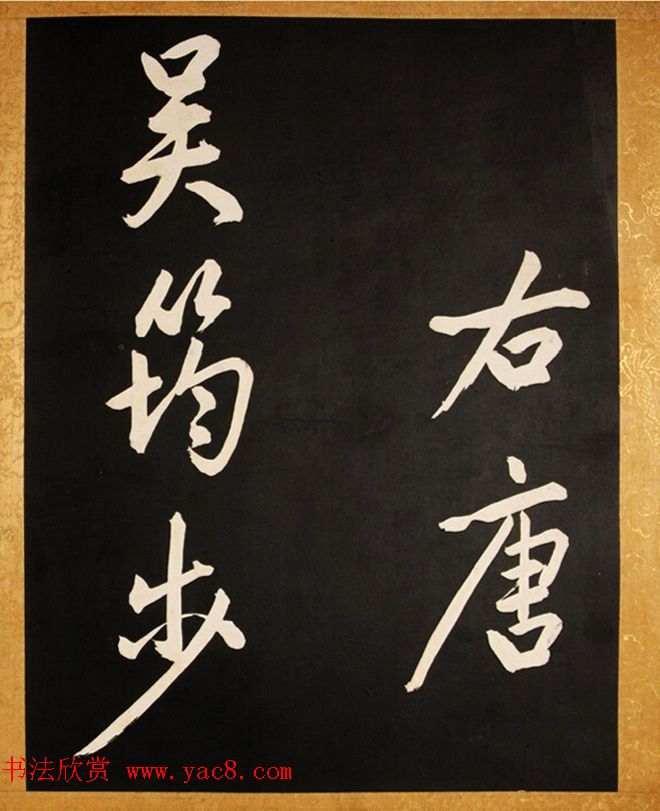 右唐
吴筠步
书法欣赏 www.yac8.com